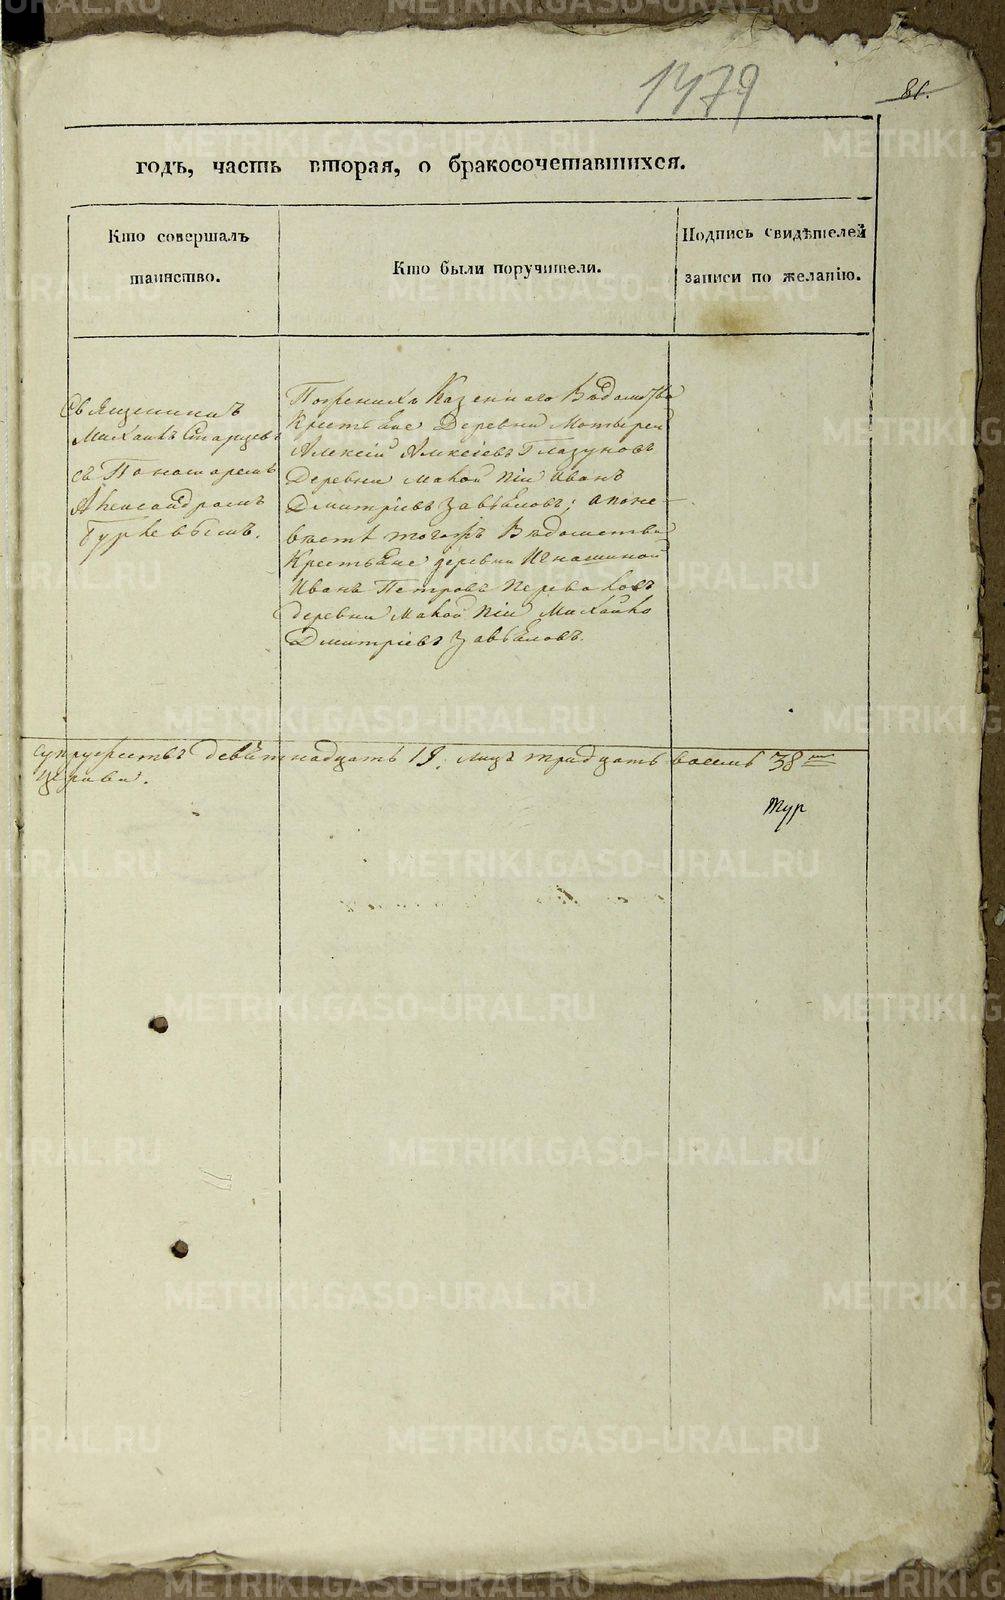 1479
81.
годъ, часть вторая, о бракосочетавшихся.
Кто совершалъ
таинство.
Кто были поручители.
Подпись свидѣтелей
записи по желанію.
Священникъ
Михаилъ Старцевъ
съ Пономаремъ
Александромъ
Поженихѣ Казеннаго Вѣдомства
Крестьяне Деревни
Алексій Алексіевъ Глазуновъ
Деревни Малой Піи Иванъ
Дмитріевъ Завьяловъ; а поне-
вѣстѣ тогожъ Вѣдомства
Крестьяне деревни Игнашиной
Иванъ Петровъ
деревни Малой Піи Михайло
Дмитріевъ Завьяловъ.
супружествъ девятнадцать 19. лицъ тридцать восемь 38
METRIKI.GASO-URAL.RU